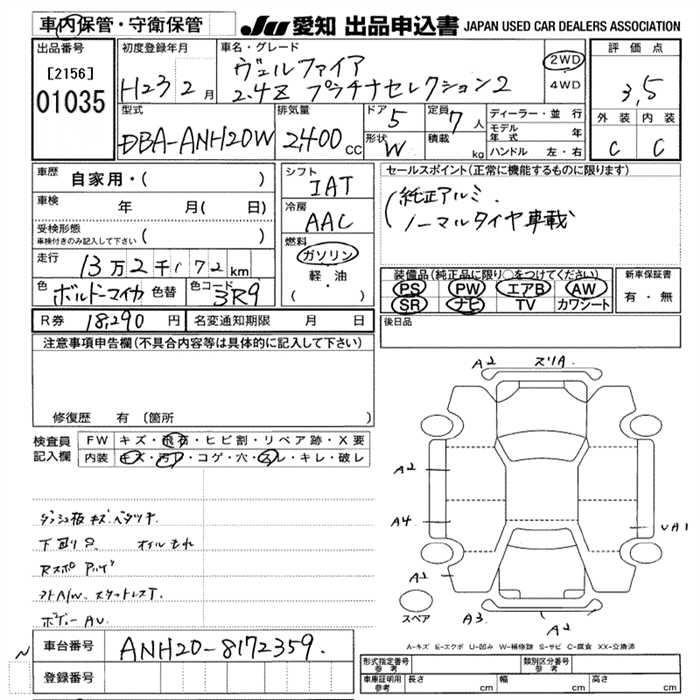 車内保管・守衛保管
JU 愛知 出品申込書 JAPAN USED CAR DEALERS ASSOCIATION
出品番号
[2156]
01035
初度登録年月
H23 2月
車名・グレード
ヴェルファイア
2.4Z プラチナセレクション2
2WD
4WD
評価点
3.5
外装 内装
C C
型式
DBA-ANH20W
排気量
2,400 CC
ドア 5
形状 W
定員 7人
積載 kg
ディーラー・並行
モデル年式 年
ハンドル 左・右
車歴 自家用・( )
車検 年 月( 日)
受検形態
車検付きのみ記入して下さい ( )
走行 13万2千172km
色 ボルドーマイカ 色替 色コード 3R9
シフト
IAT
冷房
AAC
燃料
ガソリン
軽・油
( )
セールスポイント(正常に機能するものに限ります)
純正アルミ.
ノーマルタイヤ車載
装備品(純正品に限り○をつけてください)
PS PW エアB AW
SR ナビ TV カワシート
新車保証書
有・無
R券 18,290円 名変通知期限 月 日
後日品
注意事項申告欄(不具合内容等は具体的に記入して下さい)
修復歴 有 (箇所 )
検査員記入欄
FW キズ・飛石・ヒビ割・リペア跡・X要
内装 キズ・汚れ・コゲ・穴・スレ・キレ・破レ
ダッシュ板キズベタツキ
下廻りS. オイルもれ
外A/W. スタットレスT.
A2 スリA
A2
A4
UA1
A2
A3
A2
スペア
A-キズ E-エクボ U-凹み W-補修跡 S-サビ C-腐食 XX-交換済
車台番号 ANH20-8172359.
登録番号
形式指定番号 参考
類別区分番号 参考
車庫証明用 参考 長さ cm 幅 cm 高さ cm